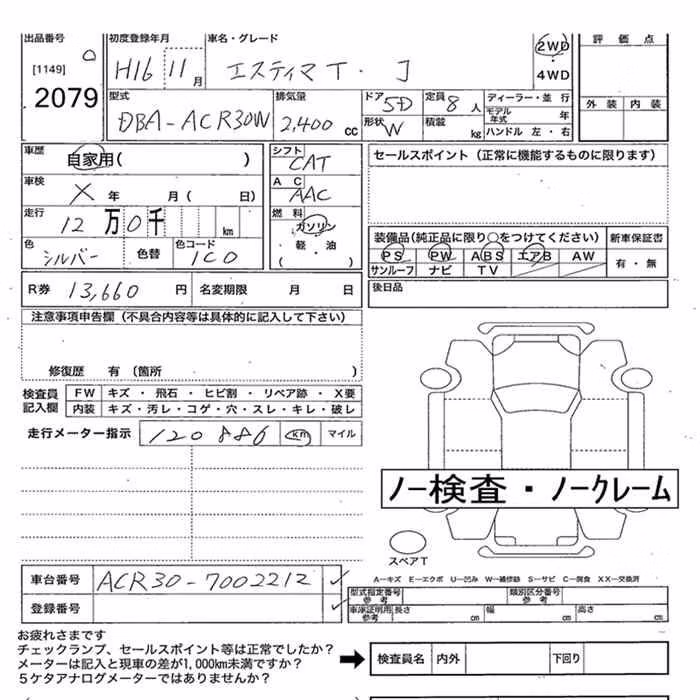 出品番号 初度登録年月 車名・グレード 2WD 評価点
[1149] H16 11月 エスティマT・J 4WD
2079 型式 排気量 ドア 5D 定員 8人 ディーラー・並行 外装 内装
モデル年式 年
DBA-ACR30W 2,400cc 形状 W 積載 kg ハンドル 左・右
車歴 自家用( ) シフト CAT セールスポイント(正常に機能するものに限ります)
車検 X 年 月( 日) AC AAC
走行 12万0千 km 燃料 ガソリン 装備品(純正品に限り○をつけてください) 新車保証書
軽・油 PS PW ABS エアB AW 有・無
色 シルバー 色替 色コード 1C0 ( ) サンルーフ ナビ TV
R券 13,660円 名変期限 月 日 後日品
注意事項申告欄(不具合内容等は具体的に記入して下さい)
修復歴 有(箇所 )
検査員記入欄 FW キズ・飛石・ヒビ割・リペア跡・X要
内装 キズ・汚レ・コゲ・穴・スレ・キレ・破レ
走行メーター指示 120886 km マイル
ノー検査・ノークレーム
スペアT
A−キズ E−エクボ U−凹み W−補修跡 S−サビ C−腐食 XX−交換済
車台番号 ACR30-7002212 型式指定番号参考 類別区分番号
登録番号 車庫証明用参考 長さ cm 幅 cm 高さ cm
お疲れさまです
チェックランプ、セールスポイント等は正常でしたか?
メーターは記入と現車の差が1,000km未満ですか? 検査員名 内外 下回り
5ケタアナログメーターではありませんか?